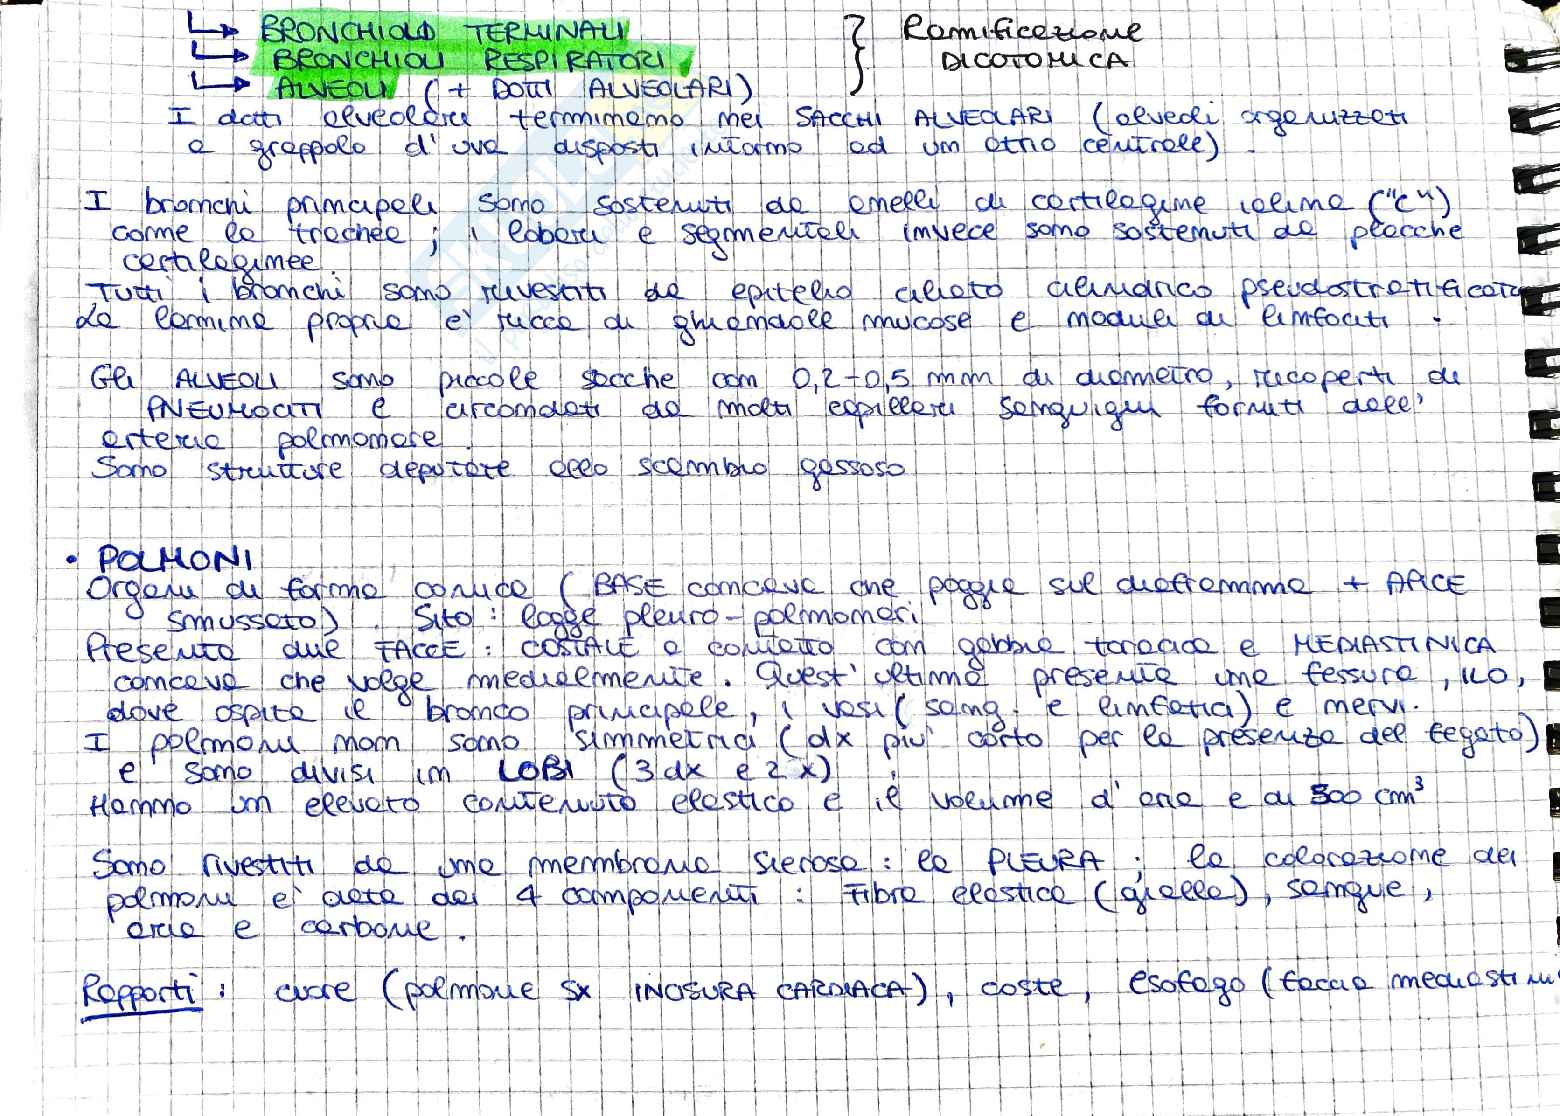 ↳ BRONCHIOLO TERMINALI
↳ BRONCHIOLI RESPIRATORI
↳ ALVEOLI (+ DOTTI ALVEOLARI)
} Ramificazione
DICOTOMICA
I dotti alveolari terminano nei SACCHI ALVEOLARI (alveoli organizzati
a grappolo d'uva disposti intorno ad un atrio centrale).
I bronchi principali sono sostenuti da anelli di cartilagine ialina ("C")
come la trachea; i lobari e segmentali invece sono sostenuti da placche
cartilaginee.
Tutti i bronchi sono rivestiti da epitelio ciliato cilindrico pseudostratificato
La lamina propria è ricca di ghiandole mucose e noduli di linfociti.
Gli ALVEOLI sono piccole sacche con 0,2-0,5 mm di diametro, ricoperti di
PNEUMOCITI e circondati da molti capillari sanguigni forniti dall'
arteria polmonare.
Sono strutture deputate allo scambio gassoso
• POLMONI
Organi di forma conica (BASE concava che poggia sul diaframma + APICE
smussato). Sito: logge pleuro-polmonari
Presenta due FACCE: COSTALE a contatto con gabbia toracica e MEDIASTINICA
concava che volge medialmente. Quest'ultima presenta una fessura, ILO,
dove ospita il bronco principale, i vasi (sang. e linfatici) e nervi.
I polmoni non sono simmetrici (dx piu' corto per la presenza del fegato)
e sono divisi in LOBI (3 dx e 2 x)
Hanno un elevato contenuto elastico e il volume d'aria e di 500 cm³
Sono rivestiti da una membrana sierosa: la PLEURA; la colorazione dei
polmoni e' data da 4 componenti: Fibra elastica (gialla), sangue,
aria e carbone.
Rapporti: cuore (polmone sx INCISURA CARDIACA), coste, esofago (faccia mediastini